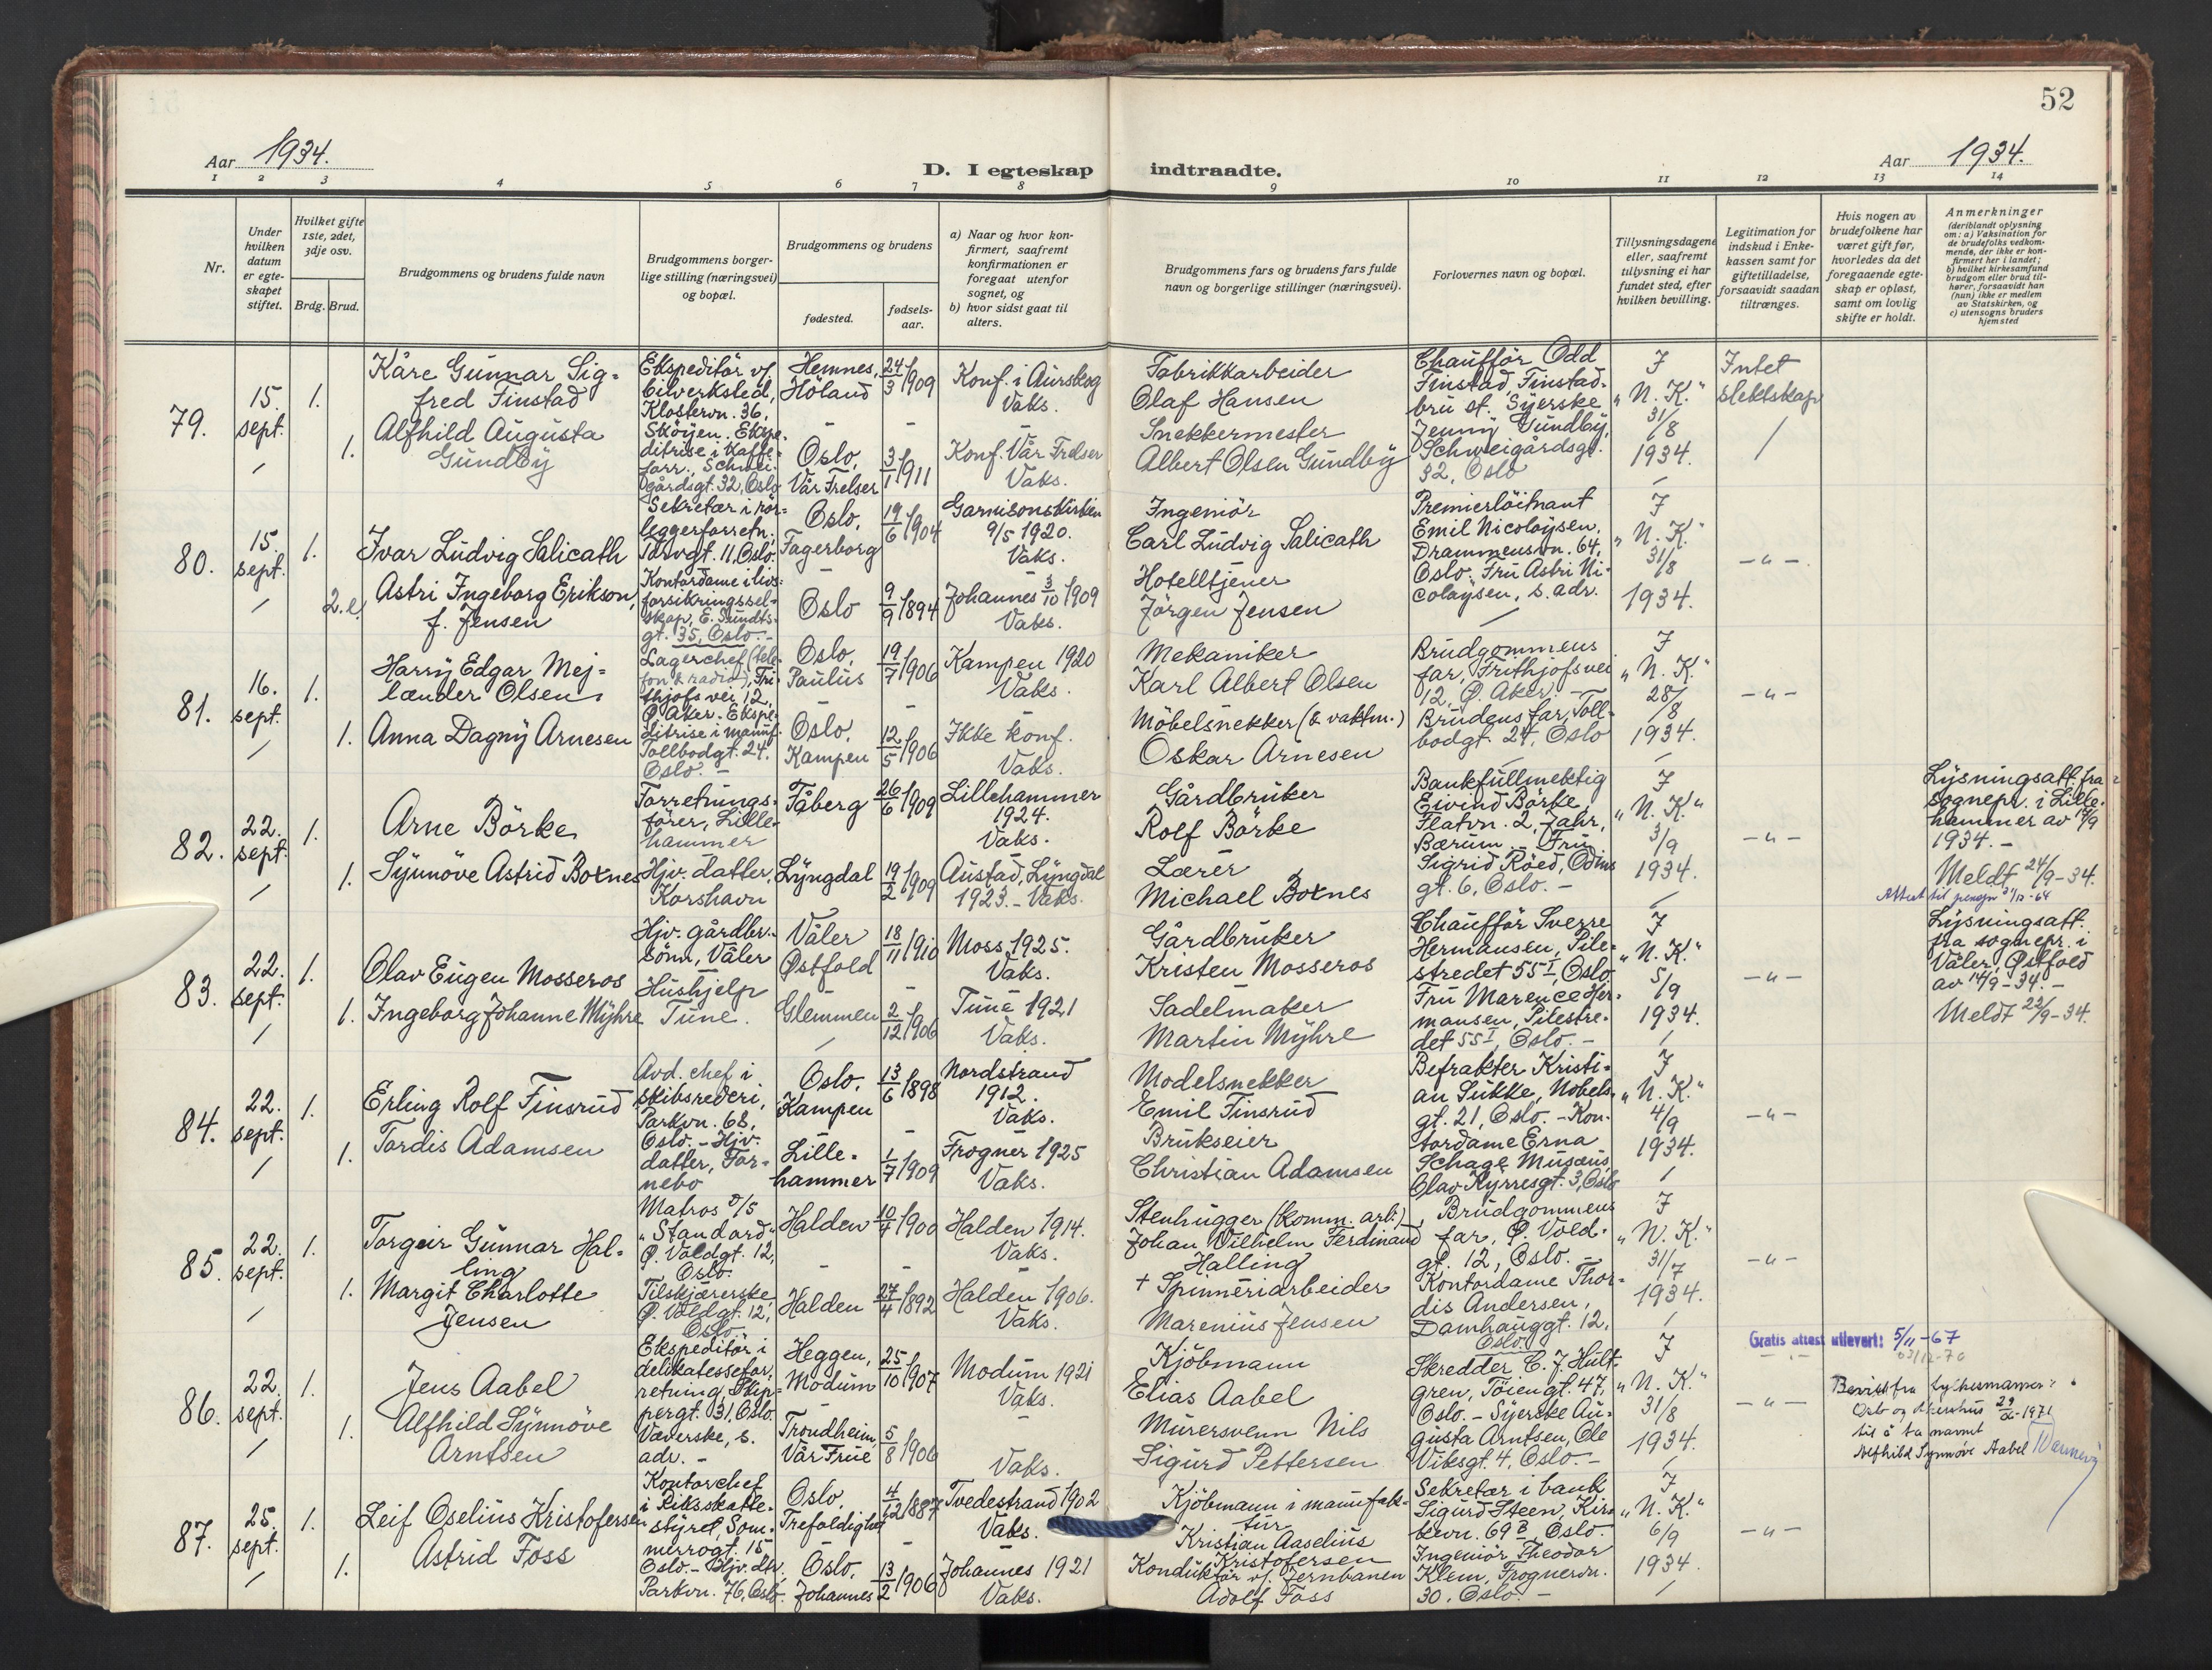 52
Aar 1934.
D. I egteskap indtraadte.
Aar 1934.
1 2 3 4 5 6 7 8 9 10 11 12 13 14
Nr.
Under hvilken datum er egteskapet stiftet.
Hvilket gifte 1ste, 2det, 3dje osv.
Brdg. Brud.
Brudgommens og brudens fulde navn
Brudgommens borgerlige stilling (næringsvei) og bopæl.
Brudgommens og brudens
fødested.
fødselsaar.
a) Naar og hvor konfirmert, saafremt konfirmationen er foregaat utenfor sognet, og
b) hvor sidst gaat til alters.
Brudgommens fars og brudens fars fulde navn og borgerlige stillinger (næringsvei).
Forlovernes navn og bopæl.
Tillysningsdagene eller, saafremt tillysning ei har fundet sted, efter hvilken bevilling.
Legitimation for indskud i Enkekassen samt for giftetilladelse, forsaavidt saadan tiltrænges.
Hvis nogen av brudefolkene har været gift før, hvorledes da det foregaaende egteskap er opløst, samt om lovlig skifte er holdt.
Anmerkninger (deriblandt oplysning om: a) Vaksination for de brudefolks vedkommende, der ikke er konfirmert her i landet; b) hvilket kirkesamfund brudgom eller brud tilhører, forsaavidt han (hun) ikke er medlem av Statskirken, og c) utensogns bruders hjemsted
79.
15. sept.
1.
Kåre Gunnar Sigfred Finstad
1.
Alfhild Augusta Gundby
Ekspeditør v/ bilverksted, Klostervn. 36, Skøyen. Ekspeditrise i kaffeforr., Schweigårdsgt. 32, Oslo
Hemnes, Höland
24/3 1909
Konf. i Aurskog
Vaks.
Oslo, Vår Frelser
3/1 1911
Konf. Vår Frelser
Vaks.
Fabrikkarbeider
Olaf Hansen
Snekkermester
Albert Olsen Gundby
Chaufför Odd Finstad, Finstadbru st. Syerske Jenny Gundby, Schweigårdsgt. 32, Oslo
I „N. K." 31/8 1934.
Intet slektskap
80.
15. sept.
1.
Ivar Ludvig Salicath
2.e
Astri Ingeborg Erikson, f. Jensen
Sekretær i rörleggerforretn., Torvgt. 11, Oslo.
Kontordame i livsforsikringsselskap, E. Sundtsgt. 35, Oslo.-
Oslo, Fagerborg
19/6 1904
Garnisonskirken 9/5 1920.
Vaks.
Oslo
9/9 1894
Johannes 3/10 1909
Vaks.
Ingeniör
Carl Ludvig Salicath
Hotelltjener
Jörgen Jensen
Premierlöitnant Emil Nicolaysen, Drammensvn. 64, Oslo. Fru Astri Nicolaysen, s. adr.
I „N. K." 31/8 1934.
-"-
81.
16. sept.
1.
Harry Edgar Mejlænder Olsen
1.
Anna Dagny Arnesen
Lagerchef (telefon & radio), Frithjofs vei 12, Ø. Aker. Ekspeditrise i manuf. Tollbodgt. 24. Oslo.-
Oslo, Paulus
19/7 1906
Kampen 1920
Vaks.
Oslo, Kampen
12/5 1906
Ikke konf.
Vaks.
Mekaniker
Karl Albert Olsen
Möbelsnekker (& vaktm.)
Oskar Arnesen
Brudgommens far, Frithjofs vei 12, Ø. Aker. -
Brudens far, Tollbodgt. 24, Oslo
I „N. K." 28/8 1934.
-"-
82.
22. sept.
1.
Arne Börke
1.
Synnöve Astrid Boknes
Forretningsförer, Lillehammer
Hjv. datter, Korshavn
Fåberg
26/6 1909
Lillehammer 1924.
Vaks.
Lyngdal
19/2 1909
Austad, Lyngdal 1923.- Vaks.
Gårdbruker
Rolf Börke
Lærer
Michael Boknes
Bankfullmektig Eivind Börke, Flatvn. 2, Jahr, Bærum.- Fru Sigrid Röed, Odinsgt. 6, Oslo.-
I „N. K." 3/9 1934.
-"-
Lysningsatt. fra sognepr. i Lillehammer av 17/9 1934.-
Meldt 24/9-34.
83.
22. sept.
1.
Olav Eugen Mosseros
1.
Ingeborg Johanne Myhre
Hjv. gårdbr. sönn, Våler
Hushjelp Tune.
Våler Østfold
18/11 1910
Moss 1925.
Vaks.
Glemmen
2/12 1906
Tune 1921
Vaks.
Gårdbruker
Kristen Mosseros
Sadelmaker
Martin Myhre
Chaufför Sverre Hermansen, Pilestredet 55 I, Oslo
Fru Marence Hermansen, Pilestredet 55 I, Oslo.-
I „N. K." 5/9 1934.
-"-
Lysningsatt. fra sognepr. i Våler, Østfold av 14/9-34.-
Meldt 22/9-34.
84.
22. sept.
1.
Erling Rolf Finsrud
1.
Tordis Adamsen
Avd. chef i skibsrederi, Parkvn. 68, Oslo.- Hjv. datter, Fornebo
Oslo, Kampen
13/6 1898
Nordstrand 1912.
Vaks.
Lillehammer
1/7 1909
Frogner 1925
Vaks.
Modelsnekker
Emil Finsrud
Brukseier
Christian Adamsen
Befrakter Kristian Sukke, Nobelsgt. 21, Oslo.- Kontordame Erna Schage Musæus, Olav Kyrresgt. 3, Oslo
I „N. K." 4/9 1934.
-"-
85.
22. sept.
1.
Torgeir Gunnar Halling
1.
Margit Charlotte Jensen
Matros D/S „Standard" Ø. Voldgt. 12, Oslo.
Tilskjærerske Ø. Voldgt. 12, Oslo.
Halden
10/4 1900
Halden 1914.
Vaks.
Halden
27/4 1892
Halden 1906.
Vaks.
Stenhugger (komm. arb.), Johan Vilhelm Ferdinand Halling
+ Spinneriarbeider
Marenius Jensen
Brudgommens far, Ø. Voldgt. 12, Oslo.-
Kontordame Thordis Andersen, Damhauggt. 12, Oslo.
I „N. K." 31/7 1934.
-"-
86.
22. sept.
1.
Jens Aabel
1.
Alfhild Synnöve Arntsen
Ekspeditör i delikatesseforretning, Skippergt. 31, Oslo.
Væverske, s. adr.-
Heggen, Modum
25/10 1907
Modum 1921
Vaks.
Trondheim, Vår Frue
5/8 1906
Vaks.
Kjöbmann
Elias Aabel
Murersvenn Nils Sigurd Pettersen
Skredder C. J. Hultgren, Töiengt. 47, Oslo.- Syerske Augusta Arntsen, Ole Viksgt. 4, Oslo.-
I „N. K." 31/8 1934.
-"-
Gratis attest utlevert: 5/11-67
til å ta navnet Alfhild Synnöve Aabel
87.
25. sept.
1.
Leif Oselius Kristofersen
1.
Astrid Foss
Kontorchef i Riksskattestyret, Sommerrogt. 15 Oslo.- Hjv. dtr., Parkvn. 76, Oslo.
Oslo, Trefoldighet
4/12 1887
Tvedestrand 1902
Vaks.
Oslo, Johannes
13/2 1906
Johannes 1921
Vaks.
Kjöbmann i manufaktur
Kristian Aaselius Kristofersen
Konduktör v/ Jernbanen
Adolf Foss
Sekretær i bank Sigurd Steen, Kirkevn. 69 B, Oslo.
Ingeniör Theodor Klem, Frognervn. 30, Oslo.-
I „N. K." 6/9 1934.
-"-